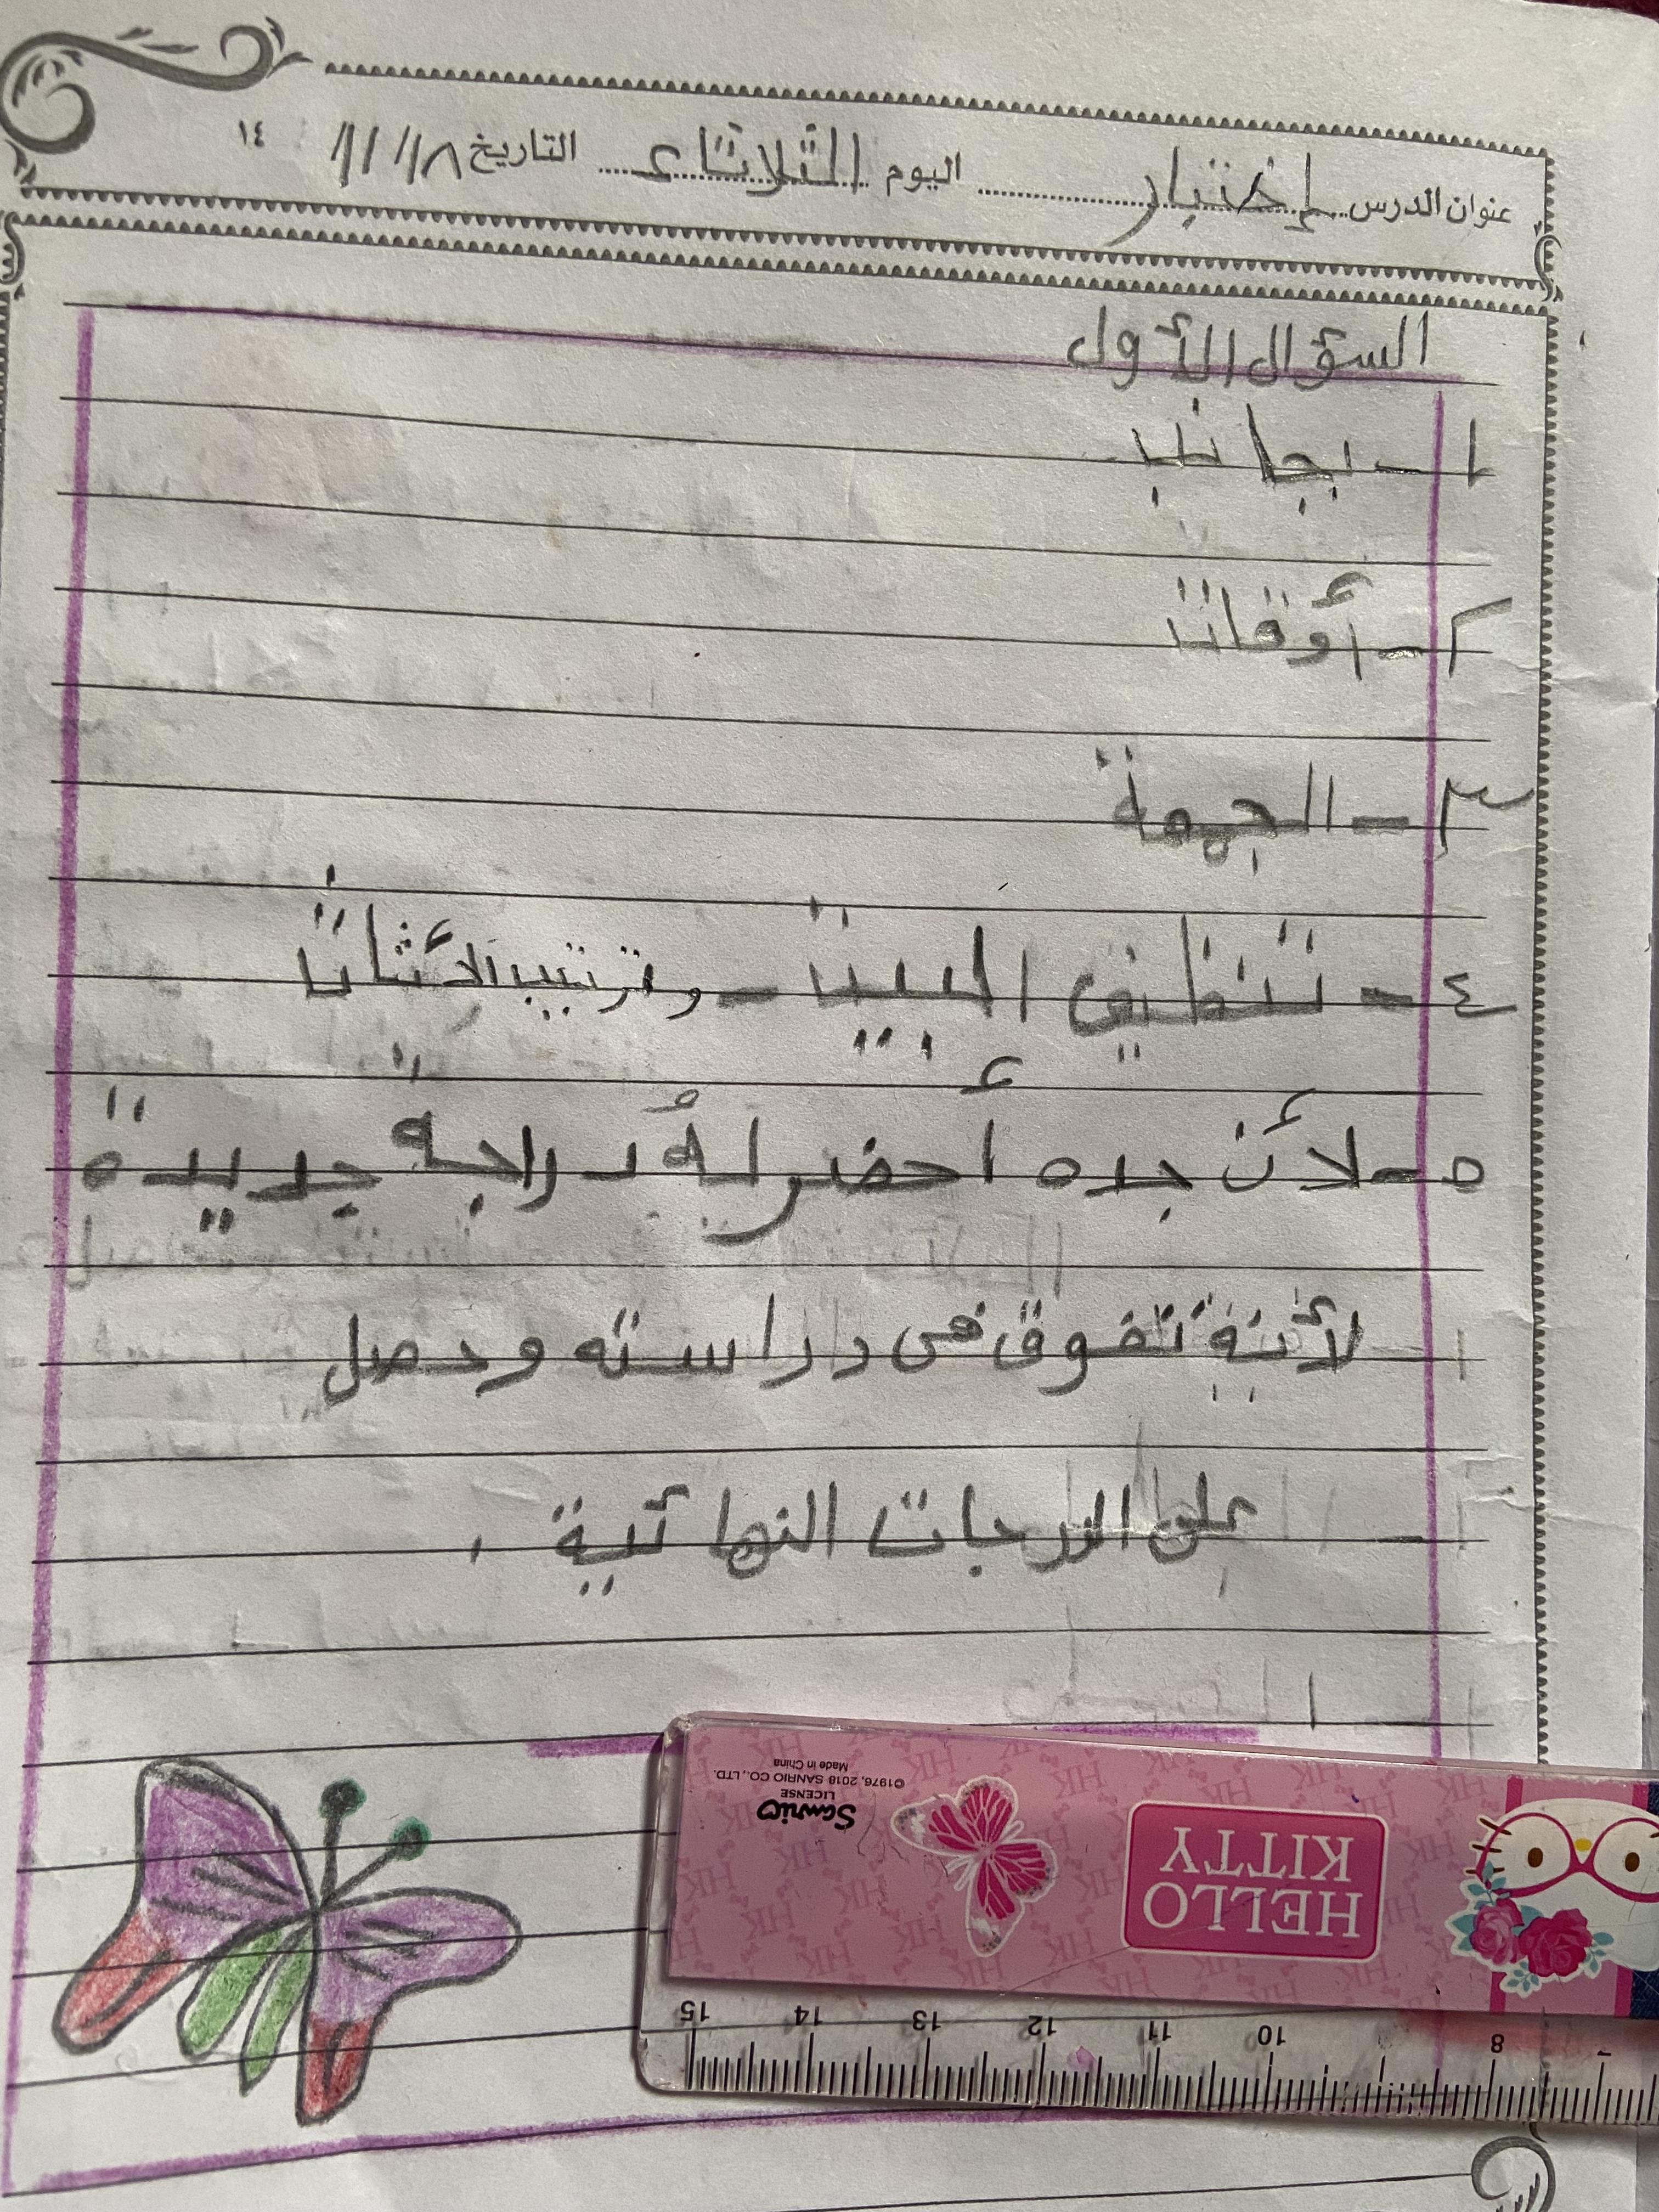 عنوان الدرس إختبار اليوم الثلاثاء التاريخ ١١/١٨/ ١٤
السؤال الأول
١ - بجانب
٢ - أوقات
٣ - الجهة
٤ - تنظيف البيت - وترتيب الأثاث
٥ - لأن جده أحضر لهُ دراجة جديدة
لأنة تفوق فى دراسته وحصل
على الدرجات النهائية .
©1976, 2018 SANRIO CO., LTD.
Made in China
LICENSE
Sanrio
HELLO
KITTY
15 14 13 12 11 10 8